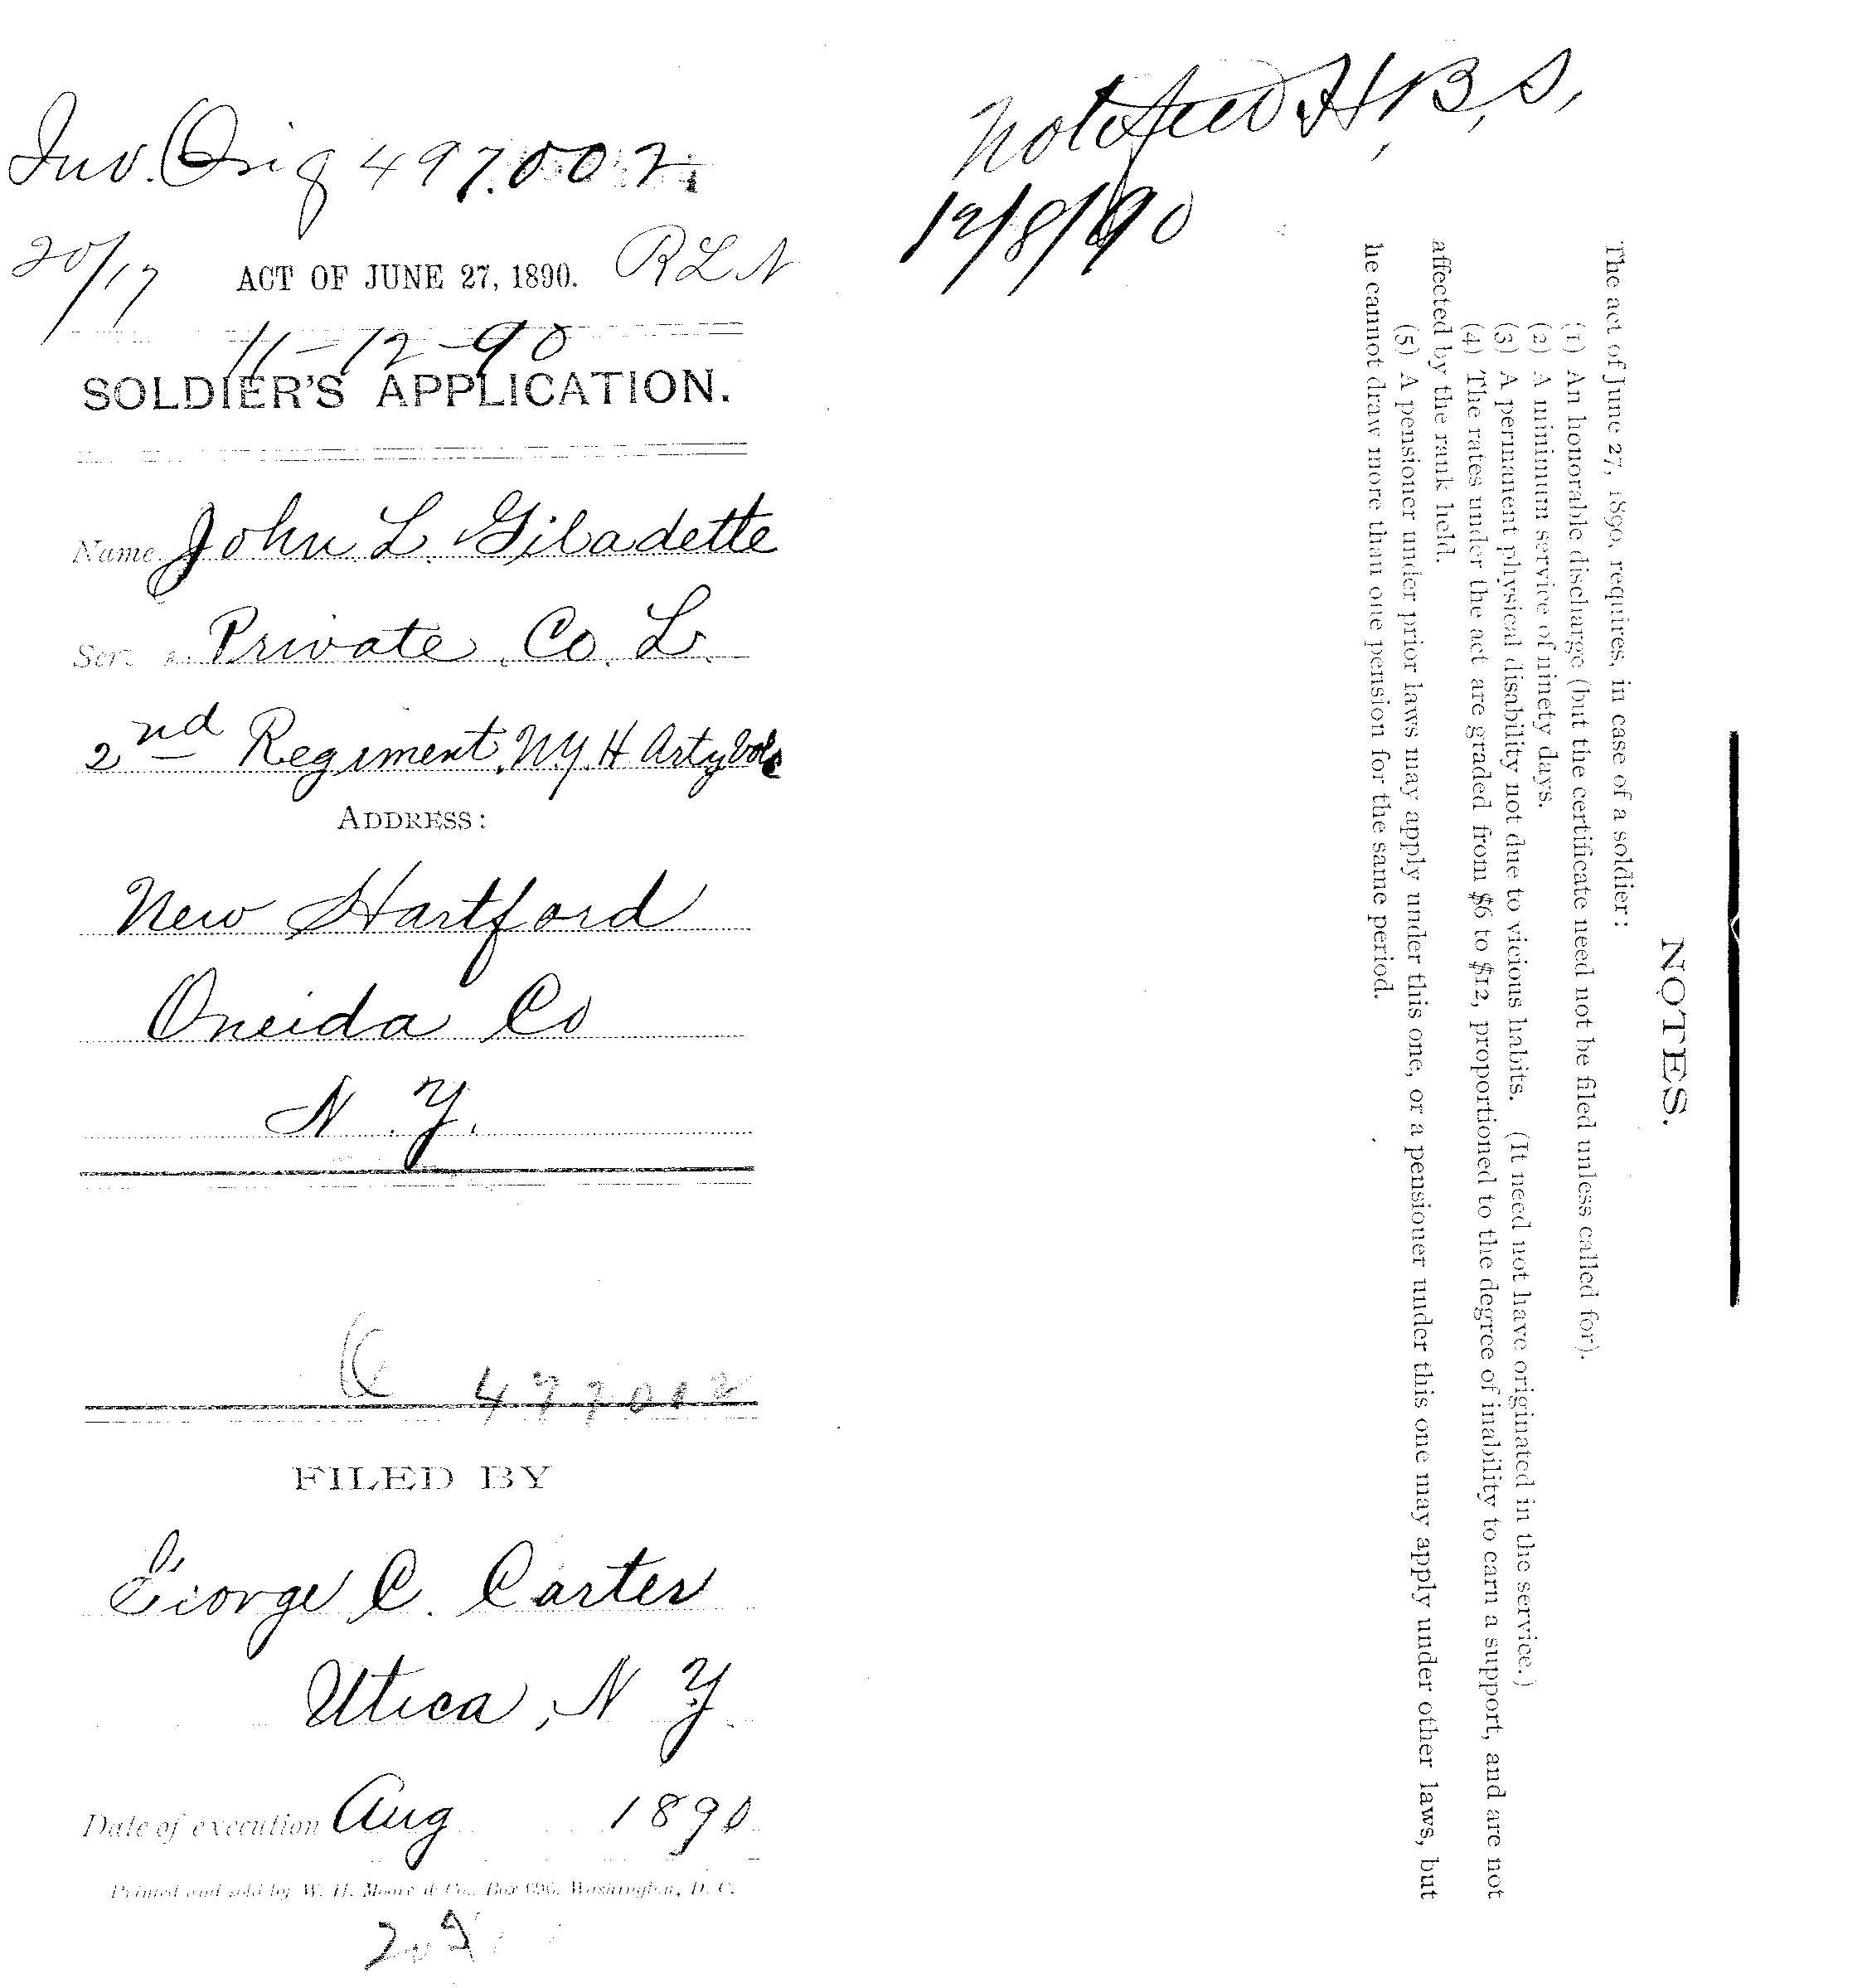 Inv. Orig 497.002
20/17 ACT OF JUNE 27, 1890. RLN
11-12-90
SOLDIER'S APPLICATION.
Name John L. Gibadette
Private Co. L.
2nd Regiment, N.Y. H Arty Vols
ADDRESS:
New Hartford
Oneida Co
N.Y.
FILED BY
George C. Carter
Utica, N Y.
Date of execution Aug 1890
Printed and sold by W. H. Moore & Co., Box 696, Washington, D. C.
Notified H, B, S,
12/8/90
NOTES.
The act of June 27, 1890, requires, in case of a soldier:
(1) An honorable discharge (but the certificate need not be filed unless called for).
(2) A minimum service of ninety days.
(3) A permanent physical disability not due to vicious habits. (It need not have originated in the service.)
(4) The rates under the act are graded from $6 to $12, proportioned to the degree of inability to earn a support, and are not
affected by the rank held.
(5) A pensioner under prior laws may apply under this one, or a pensioner under this one may apply under other laws, but
he cannot draw more than one pension for the same period.